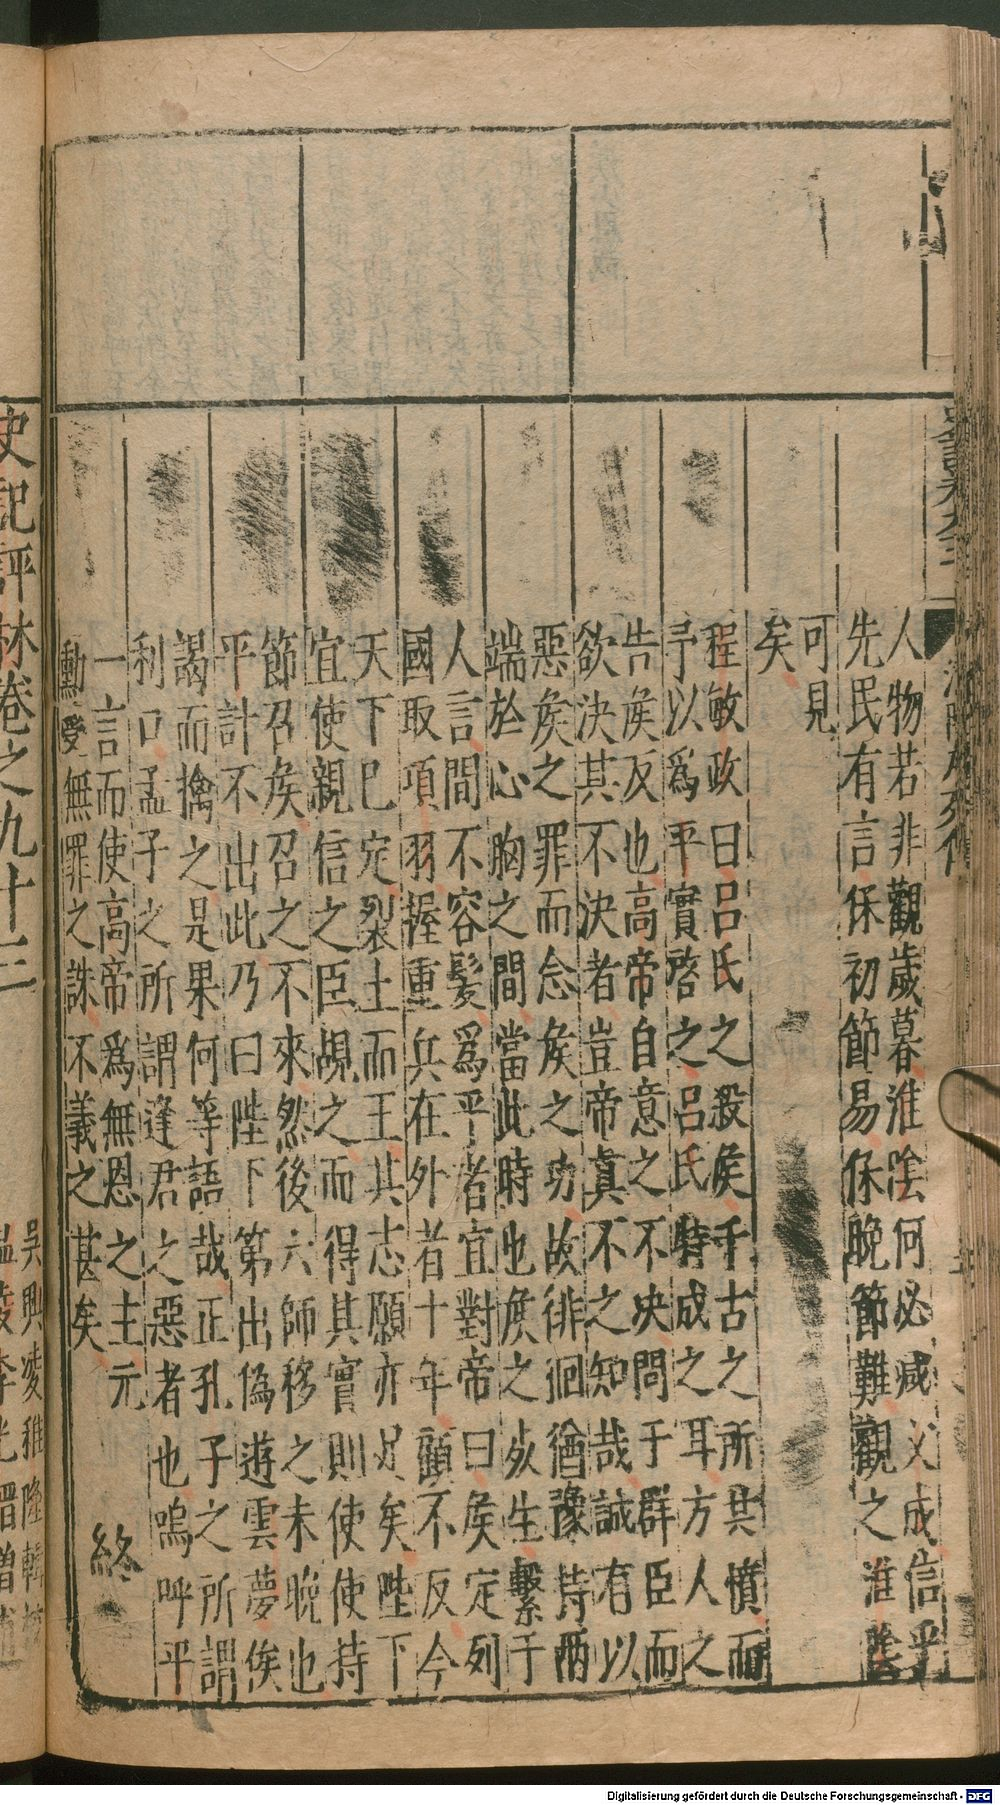 人物若非觀歲暮淮陰何必減父成信乎
先民有言保初節易保晚節難觀之淮陰
可見
矣
程敏政曰呂氏之殺侯千古之所共憤而
予以爲平實啓之呂氏特成之耳方人之
告侯反也高帝自意之不决問于群臣而
欲決其不決者豈帝真不之知哉誠有以
惡侯之罪而念侯之功故徘徊猶豫持兩
端於心胸之間當此時也侯之死生繫于
人言間不容髮爲平者宜對帝曰侯定列
國取項羽握重兵在外者十年顧不反今
天下已定裂土而王其志願亦足矣陛下
宜使親信之臣覘之而得其實則使使持
節召侯召之不來然後六師移之未晚也
平計不出此乃曰陛下第出偽遊雲夢俟
謁而擒之是果何等語哉正孔子之所謂
利口孟子之所謂逢君之惡者也嗚呼平
一言而使高帝爲無恩之主元
勳受無罪之誅不義之甚矣
終
史記評林卷之九十三
吳興凌稚隆輯校
Digitalisierung gefördert durch die Deutsche Forschungsgemeinschaft - DFG